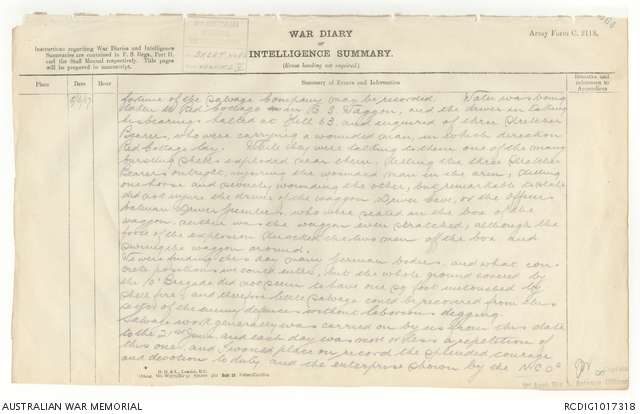 WAR DIARY
or
INTELLIGENCE SUMMARY.
(Erase heading not required).
Army Form C. 2118.
Instructions regarding War Diaries and Intelligence
Summaries are contained in F. S. Regs., Part II.
and the Staff Manual respectively. Title pages
will be prepared in manuscript.
Place
Date
Hour
Summary of Events and Information
Remarks and
references to
Appendices
fortune of the Salvage Company may be recorded. Water was being
taken to Red Cottage in a G S Waggon, and the driver in taking
his bearings halted at Hill 63, and enquired of three Stretcher
Bearers, who were carrying a wounded man, in which direction
Red Cottage lay. While they were talking to them one of the many
bursting shells exploded near them, killing the three Stretcher
Bearers outright, injuring the wounded man in the arm, killing
one horse and severely wounding the other, but remarkable to state
did not injure the driver of the waggon Driver or the Officers
batman Driver who were seated in the box of the
waggon, neither was the waggon even scratched, although the
force of the explosion knocked the two men off the box and
swung the waggon around.
We were finding this day many German bodies, and what con
crete positions we could enter, but the whole ground covered by
the 10 Brigade did not seem to have one sq foot untouched by
shell fire, and therefore little salvage could be recovered from this
sector of the enemy defences without laborious digging.
Salvage work generally was carried on by us from this date
to the 2 June and each day was more or less a repetition of
this one, and I would place on record the splendid courage
and devotion to duty and the enterprise shown by the N.C.Os
AUSTRALIAN WAR MEMORIAL
RCDIG1017318